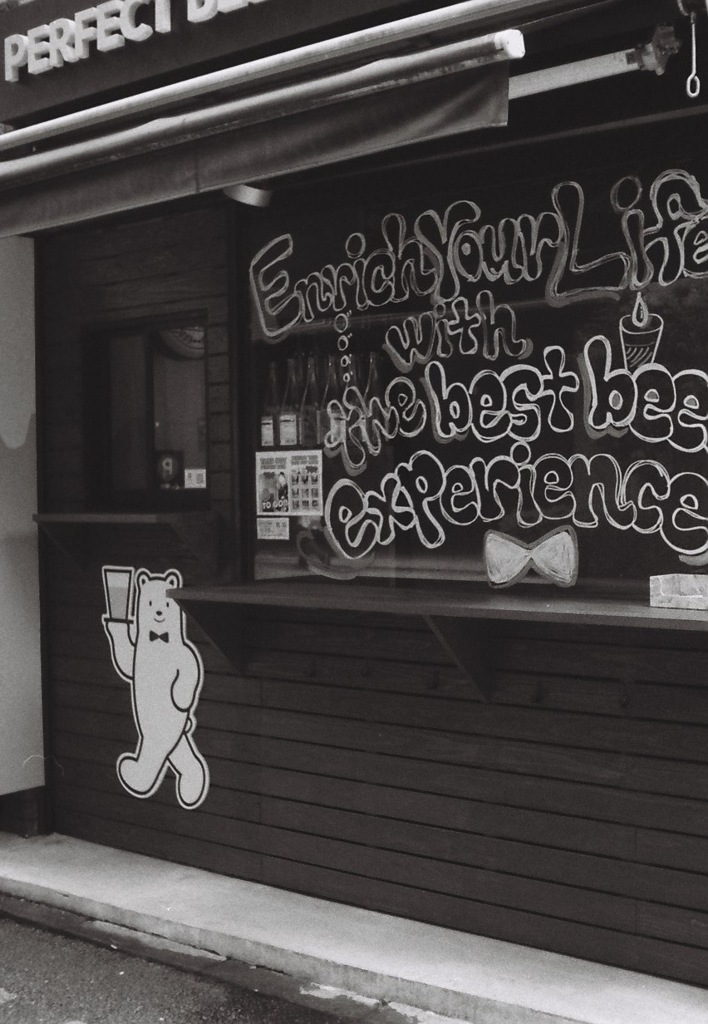 PERFECT BE
Enrich Your Life
with
the best bee
experience
TO GO!